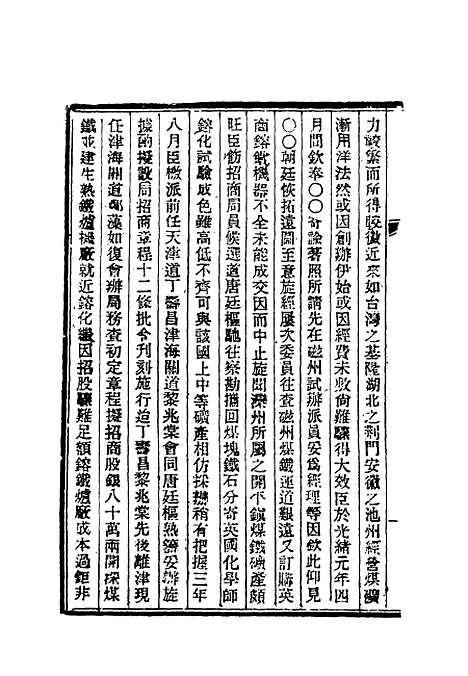 力較繁而所得較微近來如台灣之基隆湖北之荆門安徽之池州經營煤礦
漸用洋法然或因創辦伊始或因經費未敷尚難驟得大效臣於光緒元年四
月間欽奉〇〇寄諭著照所請先在磁州試辦派員妥爲經理等因欽此仰見
〇〇朝廷恢拓遠圖至意旋經屢次委員往查磁州煤鐵運道艱遠又訂購英
商鎔鐵機器不全未能成交因而中止旋聞灤州所屬之開平鎮煤鐵礦產頗
旺臣飭招商局員候選道唐廷樞馳往察勘攜回煤塊鐵石分寄英國化學師
鎔化試驗成色雖高低不齊可與該國上中等礦產相仿採辦稍有把握三年
八月臣檄派前任天津道丁壽昌津海關道黎兆棠會同唐廷樞熟籌妥辦旋
據酌擬設局招商章程十二條批令刊刻施行迨丁壽昌黎兆棠先後離津現
任津海關道鄭藻如復會辦局務查初定章程擬招商股銀八十萬兩開採煤
鐵並建生熟鐵爐機廠就近鎔化繼因招股驟難足額鎔鐵爐廠成本過鉅非